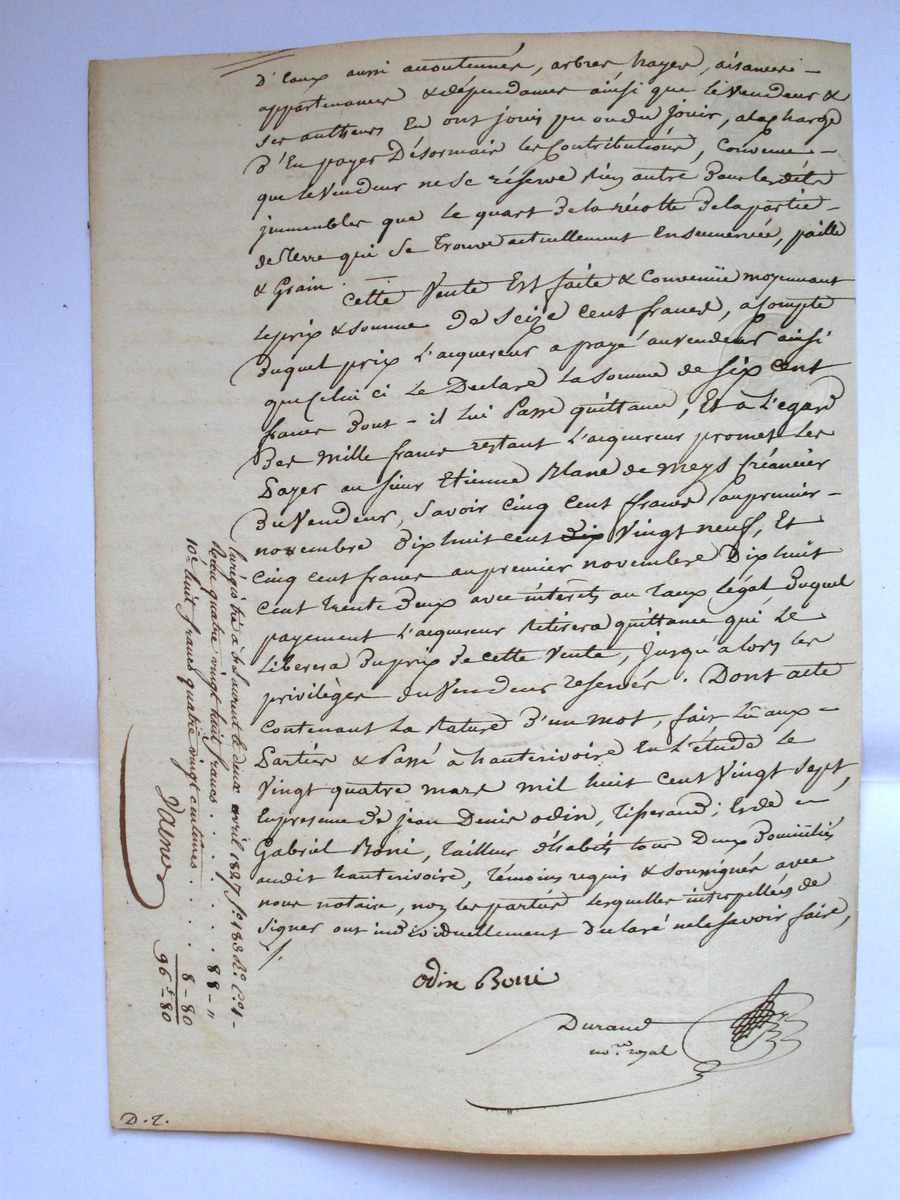 D'Eaux aussi accoutumés, arbres hayes, aisances -
appartenances & dépendances ainsi que le Vendeur &
ses autheurs En ont joui peu ou du Jouir, a la Charge
D'En payer Désormais les Contributions, Convenu -
que le Vendeur ne Se réserve Rien autre dans les dits
immeubles que le quart de la récolte de la partie -
de Terre qui Se trouve actuellement Ensemencée, paille
& Grain.
Cette Vente Est faite & Convenüe moyennant
Le prix & somme De Seize Cent francs, à Compte
Duquel prix L'acquereur a payé au vendeur ainsi
que Celui ci Le Declare La Somme de Six Cent
francs Dont - il lui Passe quittance, Et a L'egard
Des Mille francs restant L'acquereur promet Les
Payer au Sieur Etienne Blanc de Meys Créancier
Du Vendeur, Savoir Cinq Cent francs au premier -
novembre Dix huit cent dix Vingt neuf, Et
Cinq Cent francs au premier novembre Dix huit
Cent Trente Deux avec intérets au Taux Légal Duquel
payement L'acquereur Retirera quittance qui Le
Liberera Du prix de Cette Vente, jusqu'alors les
privilèges du Vendeur reservés. Dont acte
Contenant La Rature D'un mot, fait Lû aux -
Parties & Passé à hauterivoire En L'étude Le
Vingt quatre mars mil huit Cent Vingt Sept,
En presence de jean Denis odin, Tisserand; Et de -
Gabriel Boni, Tailleur d'habits tous Deux Domiciliés
audit hauterivoire, Témoins requis & Soussignés avec
nous notaire, non les parties lesquelles interpellées de
Signer ont individuellement Declaré ne le Savoir faire,
odin Boni
Durand
no.re royal
Enrégistré à St Laurent le deux avril 1827 fo. 183 Ro. C. 1 -
Reçu quatre vingt huit francs . . . . . 88 - "
10e. huit francs quatre vingt centimes . . . . 8 - 80
96f - 80
D. 2.